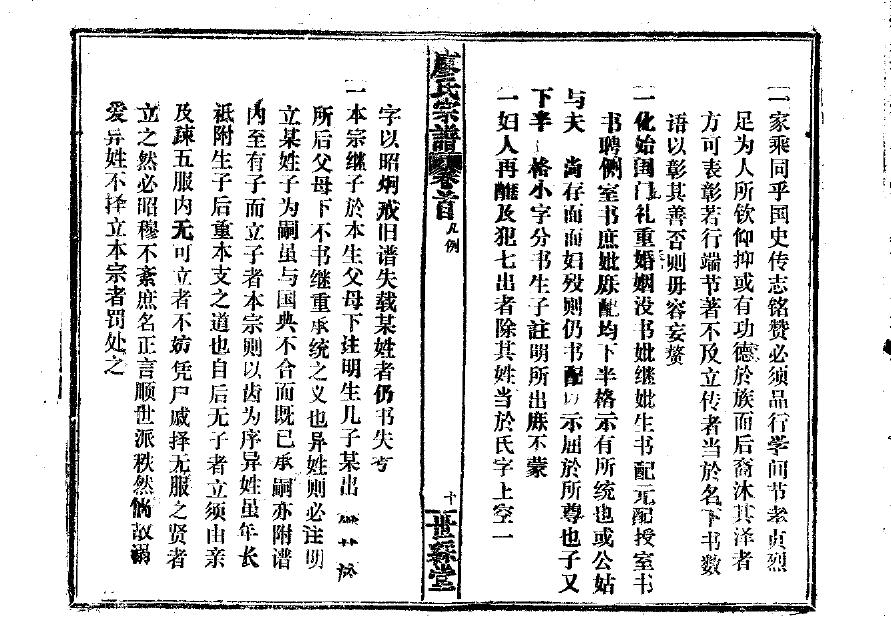 一家乘同乎国史传志铭赞必须品行学问节孝贞烈
足为人所钦仰抑或有功德於族而后裔沐其泽者
方可表彰若行端节著不及立传者当於名下书数
语以彰其善否则毋容妄赘
一化始闺门礼重婚姻没书妣继妣生书配元配授室书
书聘侧室书庶妣庶配均下半格示有所统也或公姑
与夫尚存而妇殁则仍书配以示屈於所尊也子又
下半格小字分书生子註明所出庶不蒙
一妇人再醮及犯七出者除其姓当於氏字上空一
廖氏宗谱 卷首 凡例 十 世綵堂
字以昭炯戒旧谱失载某姓者仍书失考
一本宗继子於本生父母下注明生几子某出 於
所后父母下不书继重承统之义也异姓则必注明
立某姓子为嗣虽与国典不合而既已承嗣亦附谱
内至有子而立子者本宗则以齿为序异姓虽年长
祗附生子后重本支之道也自后无子者立须由亲
及疎五服内无可立者不妨凭尸戚择无服之贤者
立之然必昭穆不紊庶名正言顺世派秩然倘故溺
爱异姓不择立本宗者罚处之